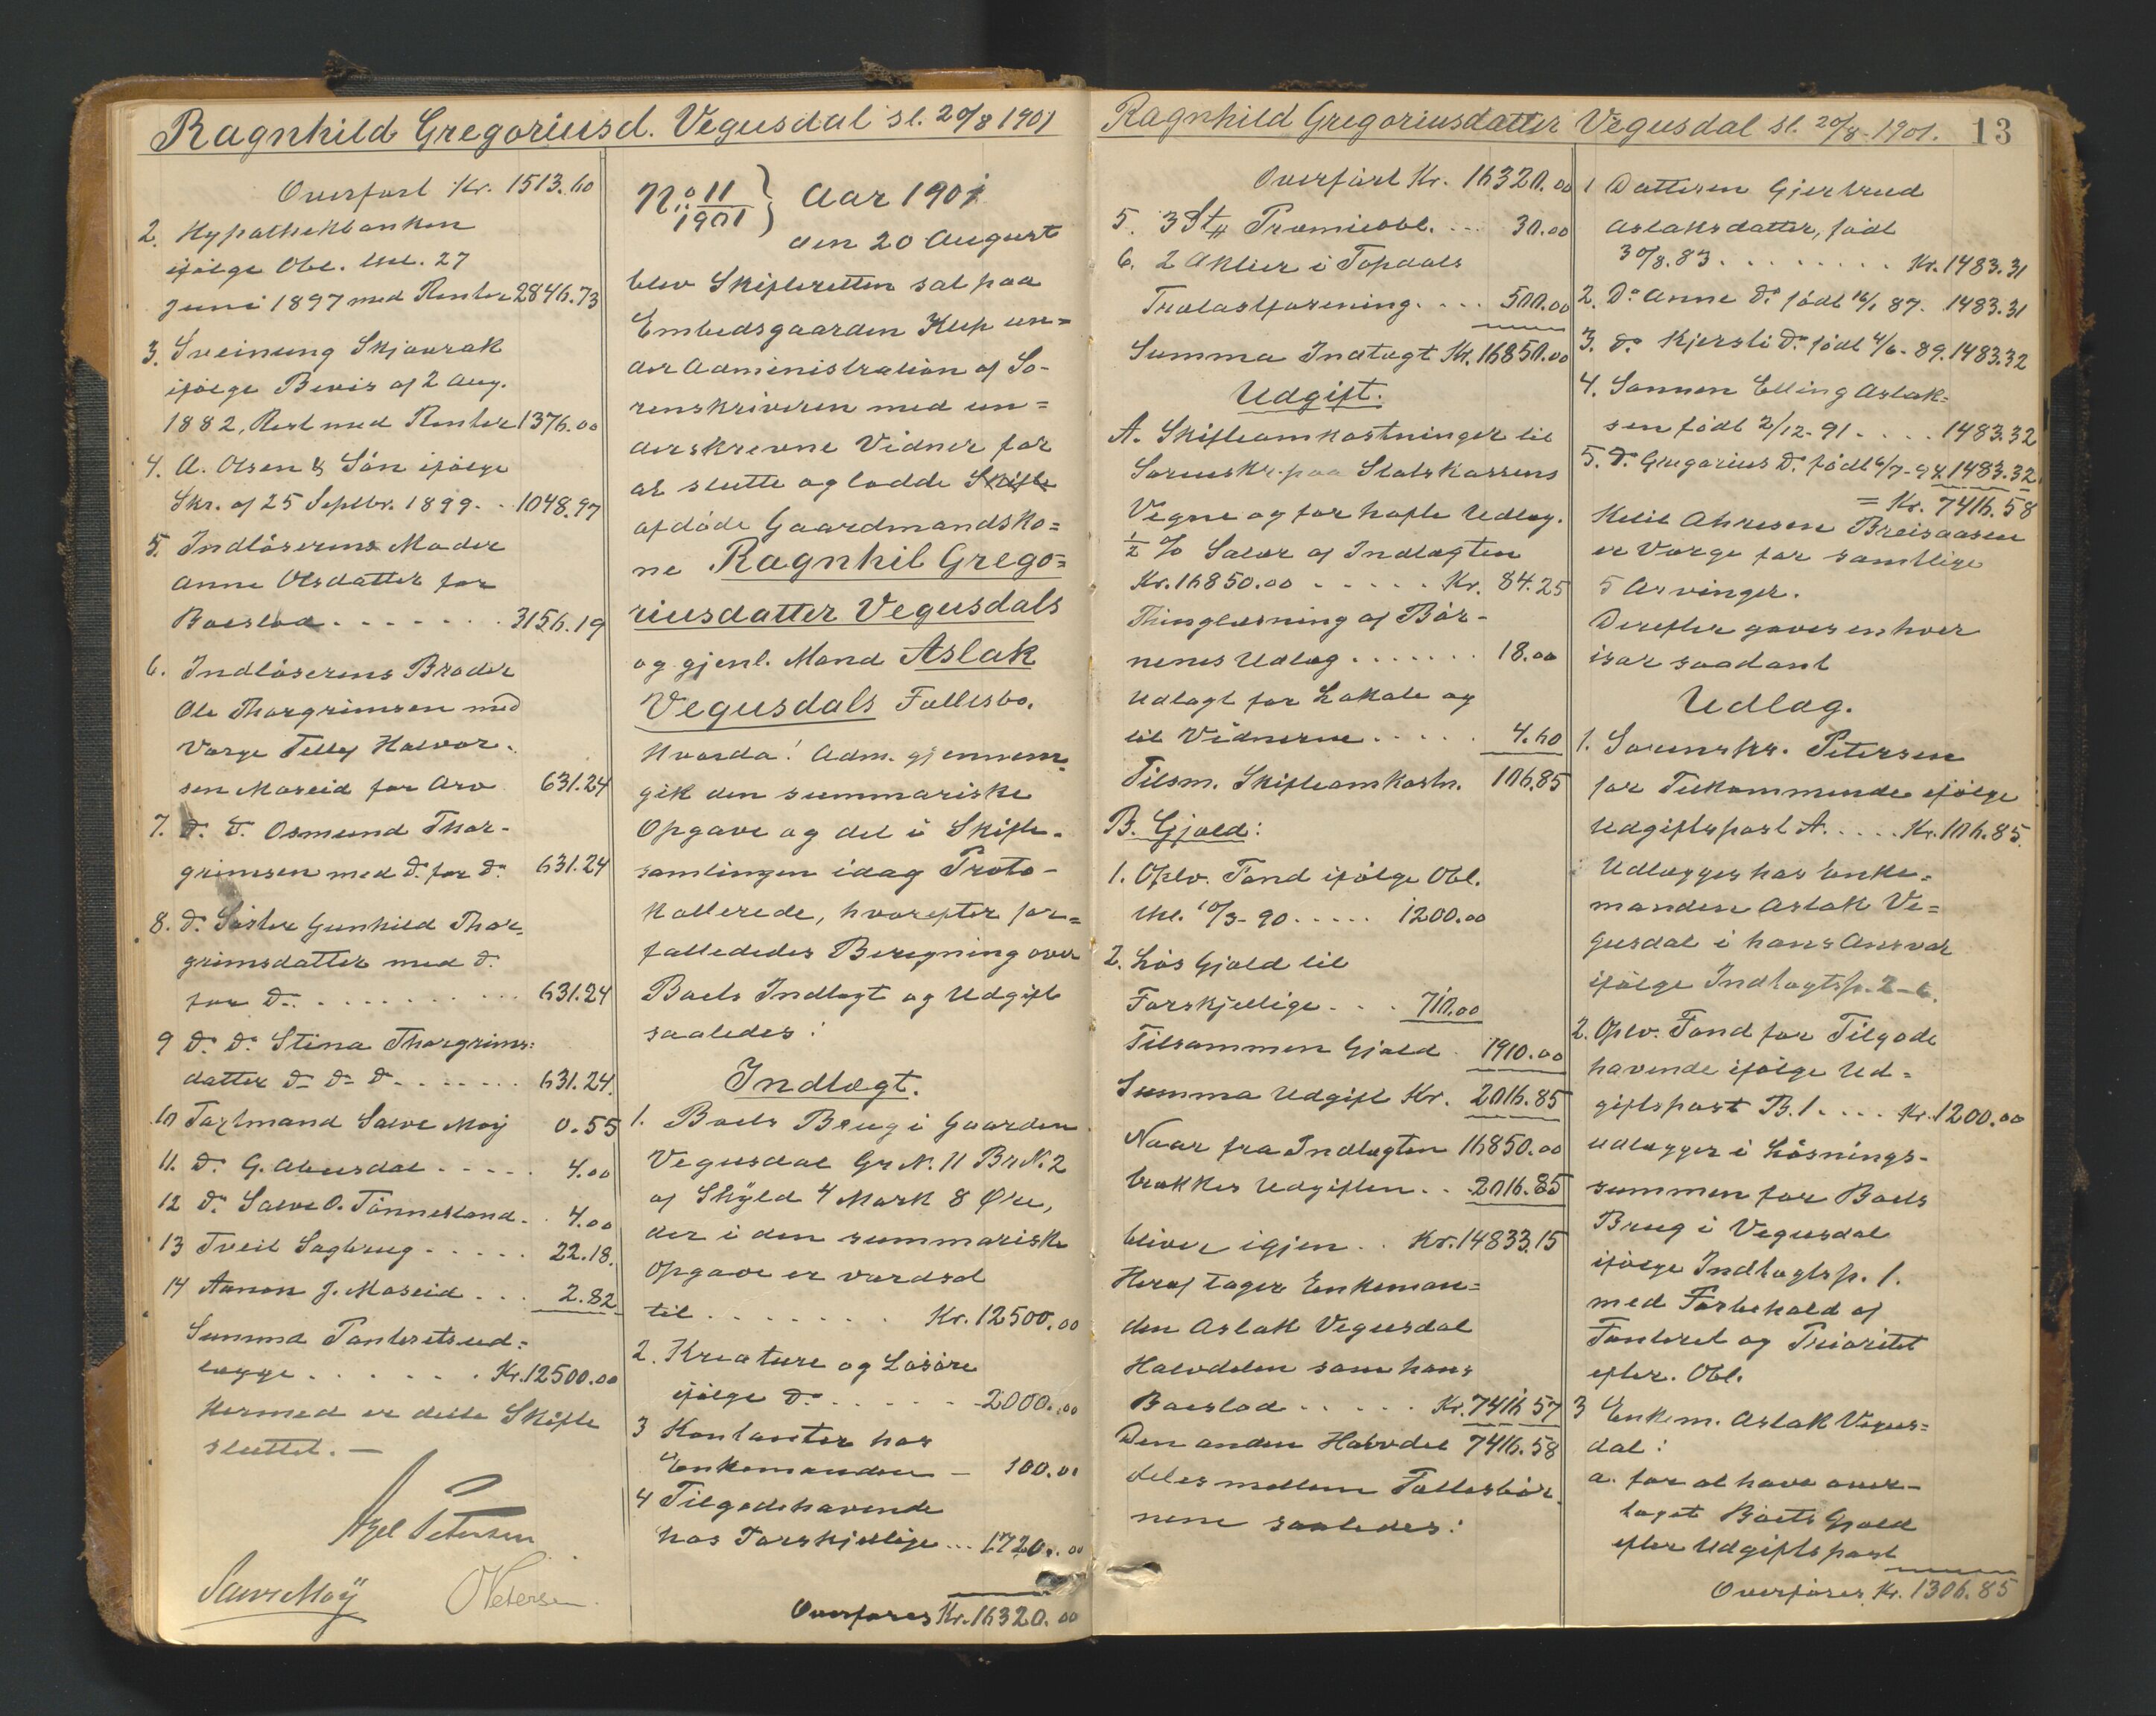 Ragnhild Gregoriusd. Vegusdal sl. 20/8 1901
Overført Kr. 1513.60
2. Hypothekbanken
ifølge Obl. thl. 27
Juni 1897 med Renter 2846.73
3. Sveinung Skjævrak
ifølge Bevis af 2 Aug.
1882, Rest med Renter 1376.00
4. A. Olsen & Søn ifølge
Skr. af 25 Septbr. 1899. . 1048.97
5. Indløserens Moder
Anne Olsdatter for
Boeslod . . . . . . . 3156.19
6. Indløserens Broder
Ole Thorgrimsen med
Værge Tellef Halvor-
sen Moseid for Arv 631.24
7. Do. Do. Osmund Thor-
grimsen med Do. for Do. 631.24
8. Do. Søster Gunhild Thor-
grimsdatter med Do.
for Do. . . . . . . . . . 631.24
9 Do. Do. Stina Thorgrims=
datter Do Do Do . . . . . . 631.24.
10 Taxtmand Salve Moÿ 0.55
11. Do. G. Abusdal . . . . . 4.00
12 Do. Salve O. Tønnesland. . 4.00
13 Tveit Sagbrug . . . . . 22.18.
14 Aanon J. Moseid . . . 2.82
Summa Panteretsud=
lægge . . . . . . . Kr. 12500.00
Hermed er dette Skifte
sluttet. —
Axel Petersen
Salve Moÿ
O Petersen.
No. 11/1901 } Aar 1901
den 20 August
blev Skifteretten sat paa
Embedsgaarden Klep un=
der Administration af So-
renskriveren med un=
derskrevne Vidner for
at slutte og lodde Skifte
afdøde Gaardmandsko=
ne Ragnhil Grego=
riusdatter Vegusdals
og gjenl. Mand Aslak
Vegusdals Fællesbo.
Hvorda! Adm. gjennem-
gik den summariske
Opgave og det i Skifte-
samlingen idag Proto-
kollerede, hvorefter for=
fattededes Beregning over
Boets Indtægt og Udgift
saaledes:
Indtægt.
1. Boets Brug i Gaarden
Vegusdal Gr N. 11 Br N. 2
af Skyld 4 Mark 8 Øre,
der i den summariske
Opgave er værdsat
til . . . . . . . . Kr. 12500.00
2. Kreature og Løsøre
ifølge Do . . . . . . 2000.00
3 Kontanter hos
Enkemanden — 100.00
4 Tilgodehavende
hos Forskjellige ... 1720.00
Overføres Kr. 16320.00
Ragnhild Gregoriusdatter Vegusdal sl. 20/8 1901. 13
Overført Kr. 16320.00
5. 3 St# Præmieobl. . . . 30.00
6. 2 Aktier i Topdals
Trælastforening. . . . 500.00
Summa Indtægt Kr. 16850.00
Udgift.
A. Skifteomkostninger til
Sorenskr. paa Statskassens
Vegne og for havte Udlæg.
1/2 % Salær af Indtægten
Kr. 16850.00 . . . . . Kr. 84.25
Thinglæsning af Bør-
nenes Udlæg . . . . . . . 18.00
Udlagt for Lokale og
til Vidnerne . . . . . 4.60
Tilsm. Skifteomkostn. 106.85
B. Gjæld:
1. Oplv. Fond ifølge Obl.
thl. 10/3-90 . . . . . 1200.00
2. Løs Gjæld til
Forskjellige . . . 710.00
Tilsammen Gjæld . 1910.00
Summa Udgift Kr. 2016.85
Naar fra Indtægten 16850.00
trækkes Udgiften . . 2016.85
bliver igjen . . Kr. 14833.15
Heraf tager Enkeman=
den Aslak Vegusdal
Halvdelen som hans
Boeslod . . . . . Kr. 7416.57
Den anden Halvdel 7416.58
deles mellem Fællesbør-
nene saaledes:
1 Datteren Gjertrud
Aslaksdatter, født
30/8.83 . . . . . . . . Kr. 1483.31
2. Do. Anne Do. født 16/1 87. 1483.31
3. Do. Kjersti Do. født 4/6-89. 1483.32
4. Sønnen Elling Aslak=
sen født 2/12-91 . . . . 1483.32
5. Do. Gregorius Do. født 6/7-94 1483.32
= Kr. 7416.58
Ketil Ahresen Breisaasen
er Værge for samtlige
5 Arvinger.
Derefter gaves enhver
især saadant
Udlæg.
1. Sorenskr. Petersen
for Tilkommende ifølge
Udgiftspost A. . . . . Kr. 106.85.
Udlægges hos Enke-
manden Aslak Ve=
gusdal i hans Ansvar
ifølge Indtægtsp. 2-6.
2. Oplv. Fond for Tilgode
havende ifølge Ud-
giftspost B. 1 . . . . Kr. 1200.00
Udlægges i Løsnings-
summen for Boets
Brug i Vegusdal
ifølge Indtægtsp. 1.
med Forbehold af
Panteret og Prioritet
efter. Obl.
3 Enkem. Aslak Vegus=
dal:
a. for at have over-
taget Boets Gjæld
efter Udgiftspost
Overføres Kr. 1306.85